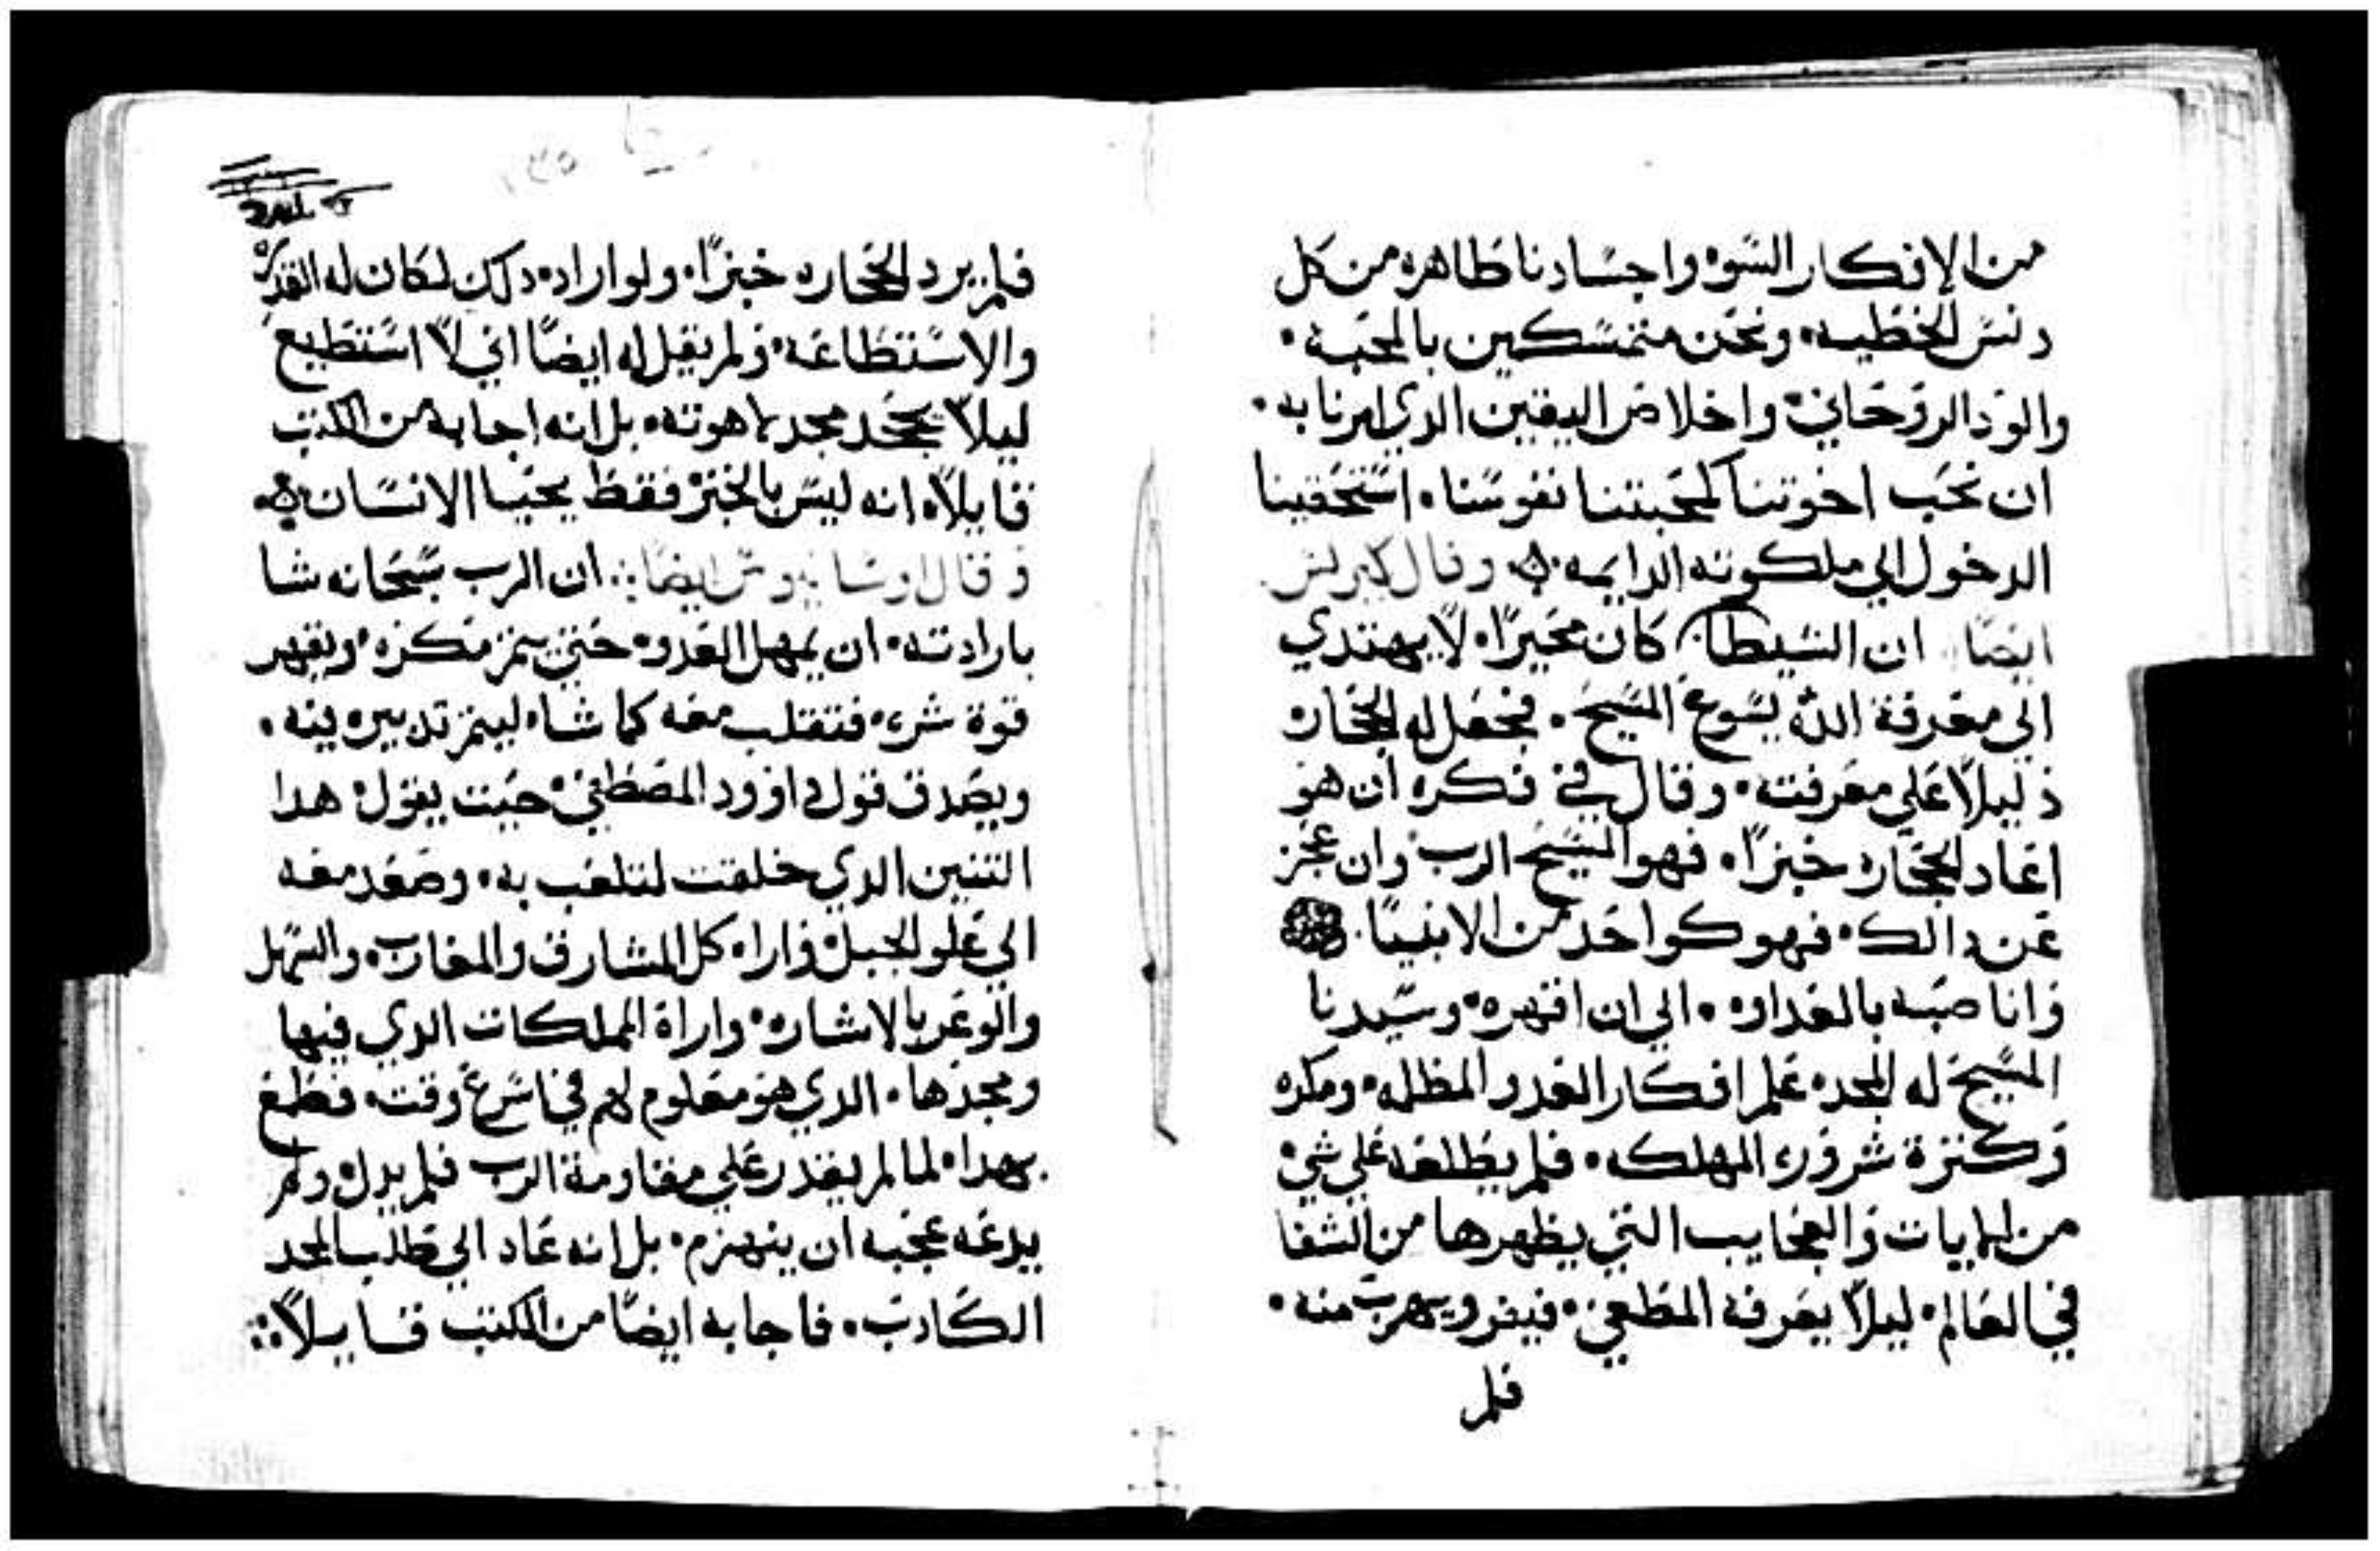 من الافكار السوه واجسادنا طاهره من كل
دنس الخطيه. ونحن متمسكين بالمحبه.
والود الروحاني. واخلاص اليقين الدي امرنا به.
ان نحب اخوتنا كمحبتنا نفوسنا. استحقينا
الدخول الي ملكوته الدايمه. وقال كيرلس
ايضا ان الشيطان كان محيرًا. لا يهتدي
الي معرفة الله يسوع المسيح. فجعل له الحجاره
دليلًا علي معرفته. وقال في فكره ان هو
اعاد الحجاره خبزًا. فهو المسيح الرب وان عجز
عن دالك. فهو كواحد من الانبيا.
وانا صبه بالعداوه. الي ان اقهره. وسيدنا
المسيح له المجد. علم افكار العدو المظلمه. ومكره
وكثرة شروره المهلكه. فلم يطلعه علي شي
من الايات والعجايب التي يظهرها من الشفا
في العالم. ليلًا يعرفه المطغي. فيفر ويهرب منه.
فلم
فلم يرد الحجاره خبزًا. ولو اراد. دلك لكان له القدره
والاستطاعه. ولم يقل له ايضًا اني لا استطيع
ليلًا يجحد مجد لاهوته. بل انه اجابه من الكتب
قايلًا. انه ليس بالخبز فقط يحيا الانسان.
وقال ايضا: ان الرب سبحانه شا
بارادته. ان يمهل العدو. حتي يتم مكره. ويقهر
قوة شره. فتقلب معه كما شا. ليتم تدبيره فيه.
ويصدق قول داوود المصطفي. حيت يقول. هدا
التنين الدي خلقت لتلعب به. وصعد معه
الي علو الجبل. واراه كل المشارق والمغارب. والسهل
والوعر بالاشاره. واراة المملكات الدي فيها
ومجدها. الدي هو معلوم لهم في اسرع وقت. فطمع
بهدا. لما لم يقدر علي مقاومة الرب فلم يدل. ولم
يدعه عجبه ان ينهزم. بل انه عاد الي طلب المجد
الكادب. فاجابه ايضًا من الكتب قايلًا: